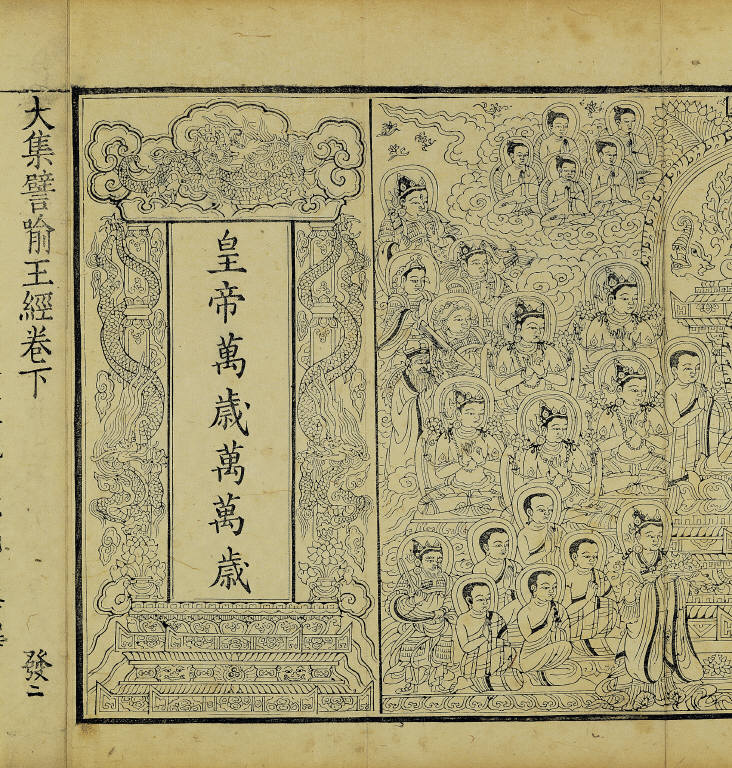 皇帝萬歳萬萬歳
大集譬喻王經卷下
發二